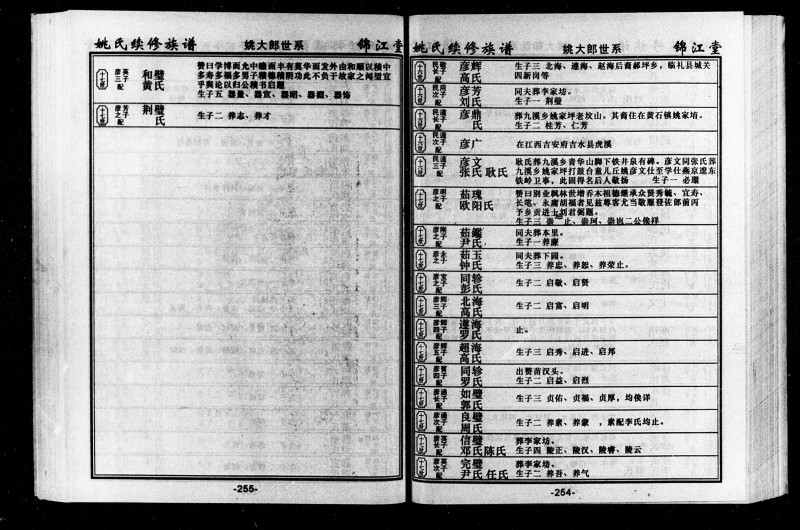 姚氏续修族谱 姚大郎世系 锦江堂
十六郎 民敬三子 配 彦辉 高氏 生子三 北海、遵海、赵海后裔郝坪乡，临礼县城关
四新岗等
十六郎 民用次子 配 彦芳 刘氏 同夫葬李家坊。
生子一 荆璧
十六郎 民通长子 配 彦鼎 氏 葬九溪乡姚家坪老坟山。其裔住在黄石镇姚家堉。
生子二 桂芳、仁芳
十六郎 民通次子 配 彦广 在江西吉安府吉水县虎溪
十六郎 民通三子 配 彦文 张氏 耿氏 耿氏葬九溪乡青华山脚下铁井泉有碑。彦文同张氏葬
九溪乡姚家坪打鼓台童儿丘姚彦文仕至学仕燕京遼东
铁岭卫事，此固得名后人敬扬 生子一 必瓊
十七郎 彦明之子 配 茹瑰 欧阳氏 赞曰别业枫林世增乔木祖德继承众贤秀毓、宜寿、
长笔、永庸胡福者见兹尊客尤当敬服發佐郎前丙
予乡贡进士刘君弼题。
生子三 崇一止、崇珂、崇岜二公俟祥
十七郎 彦刚之子 配 茹鑑 尹氏 同夫葬本里。
生子一 养廉
十七郎 彦永之子 配 茹玉 钟氏 同夫葬下园。
生子三 养忠、养恕、养荣止。
十七郎 彦宝之子 配 同轸 彭氏 生子二 启敬、启贤
十七郎 彦辉三子 配 北海 高氏 生子二 启富、启明
十七郎 彦辉四子 配 遵海 罗氏 止。
十七郎 彦辉五子 配 超海 高氏 生子三 启秀、启进、启邦
十七郎 彦賓四子 配 同轸 罗氏 出赘苗汉头。
生子二 启益、启烈
十七郎 彦通长子 配 如璧 郭氏 生子三 贞佑、贞福、贞厚，均俟详
十七郎 彦通次子 配 良璧 周氏 生子二 养素、养蒙 ，素配李氏均止。
十七郎 彦英长子 配 信璧 邓氏陈氏 葬李家坊。
生子四 陵正、陵汉、陵睿、陵云
十七郎 彦英次子 配 完璧 尹氏 任氏 葬李家坊。
生子二 养吾、养气
-254-
姚氏续修族谱 姚大郎世系 锦江堂
十七郎 彦英三子 配 和璧 黄氏 赞曰学博而允中瞻而丰有莫华而发外由和顺以积中
多寿多福多男子积德積阴功此不负于故家之闻望宜
乎舆论以归公積书启题
生子五 器量、器宣、器昭、器、器饰
十七郎 彦芳之子 配 荆璧 氏 生子二 养志、养才
-255-